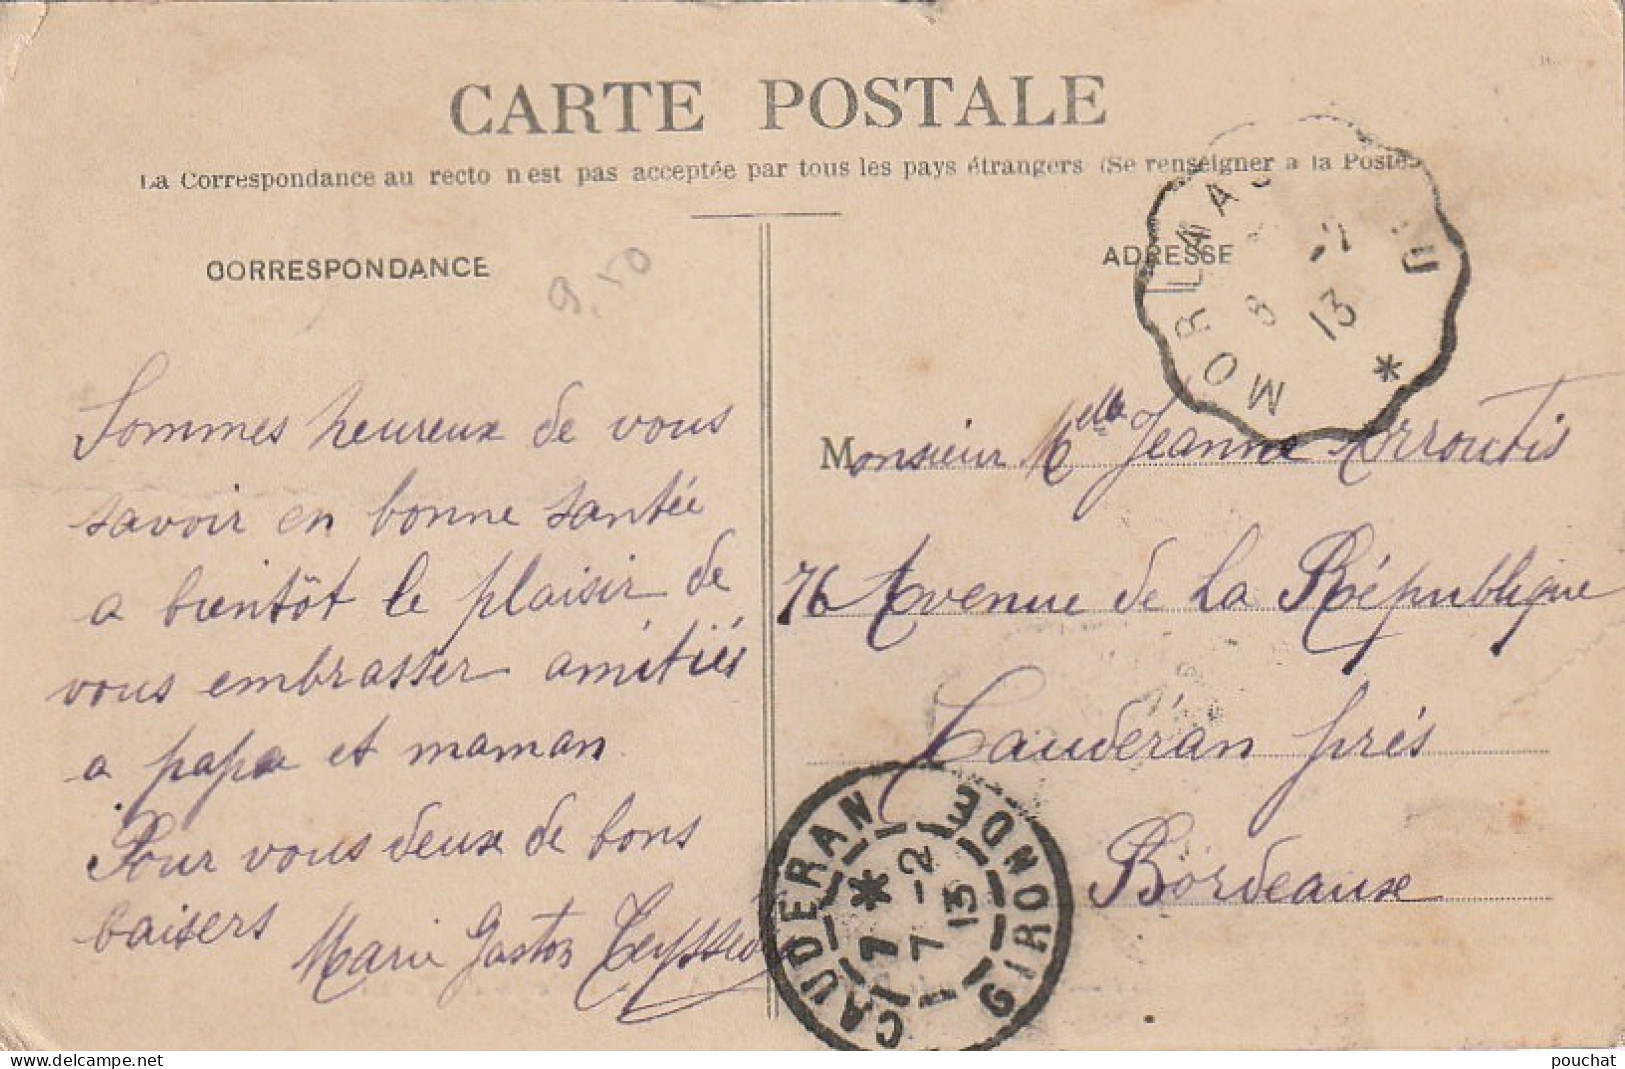 CARTE POSTALE
La Correspondance au recto n'est pas acceptée par tous les pays étrangers (Se renseigner a la Poste)
CORRESPONDANCE
9.50
Sommes heureux de vous
savoir en bonne santée
a bientôt le plaisir de
vous embrasser amitiés
a papa et maman
Pour vous deux de bons
baisers Marie Gaston
ADRESSE
MORLAAS
8 -2
13
Monsieur Melle Jeanne Arroutis
76 Avenue de La République
Caudéran près
Bordeaux
CAUDERAN GIRONDE
7 7 -2 13
www.delcampe.net
pouchat